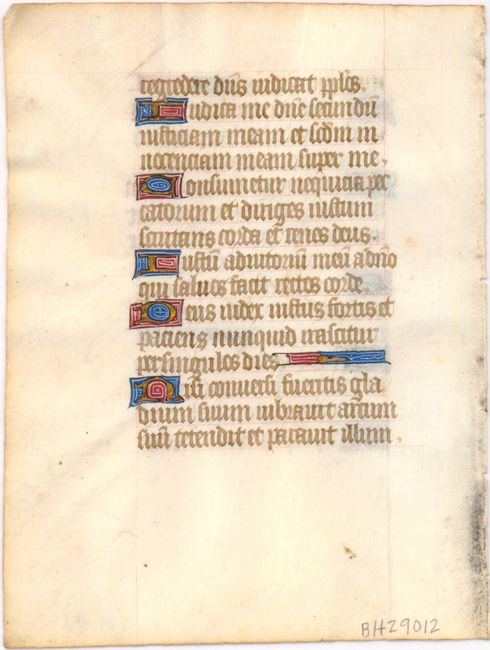 regredere dns iudicat pplos.
Iudica me dne secundu
iusticiam meam et scdm in
nocenciam meam super me.
Consumetur nequicia pec
catorum et diriges iustum
scrutans corda et renes deus.
Iustu adiutoriu meu a dno
qui saluos facit rectos corde.
Deus iudex iustus fortis et
paciens nunquid irascitur
per singulos dies
Nisi conuersi fueritis gla
dium suum uibrauit arcum
suu tetendit et parauit illum.
BH29012